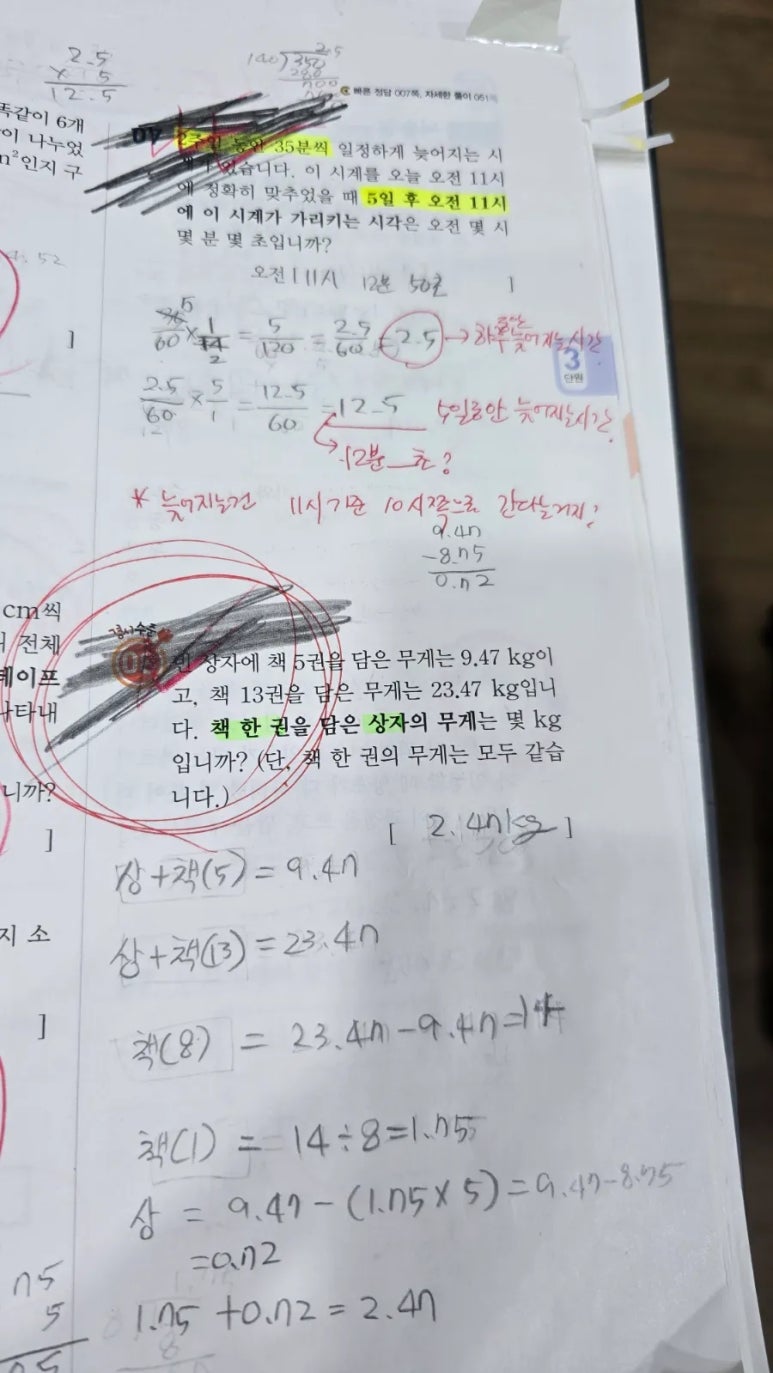 2.5
× 5
12.5
2.5
140)350
280
빠른 정답 007쪽, 자세한 풀이 051쪽
똑같이 6개
이 나누었
인지 구
]
2주일 동안 35분씩 일정하게 늦어지는 시
있습니다. 이 시계를 오늘 오전 11시
에 정확히 맞추었을 때 5일 후 오전 11시
에 이 시계가 가리키는 시각은 오전 몇 시
몇 분 몇 초입니까?
오전 11시 12분 50초 ]
5
35/60 × 1/14 2 = 5/120 = 2.5/60 = 2.5 → 하루동안 늦어지는 시간
3
단원
2.5/60 × 5/1 = 12.5/60 = 12.5 5일동안 늦어지는 시간
→ 12분 초?
* 늦어지는건 11시 기준 10시쪽으로 간다는거지?
9.47
-8.75
0.72
cm씩
전체
테이프
나타내
니까?
]
빈 상자에 책 5권을 담은 무게는 9.47 kg이
고, 책 13권을 담은 무게는 23.47 kg입니
다. 책 한 권을 담은 상자의 무게는 몇 kg
입니까? (단, 책 한 권의 무게는 모두 같습
니다.)
[ 2.47kg ]
상+책(5) = 9.47
상+책(13) = 23.47
지 소
]
책(8) = 23.47-9.47=14
책(1) = 14÷8=1.75
상 = 9.47-(1.75×5)=9.47-8.75
=0.72
1.75+0.72=2.47
75
5